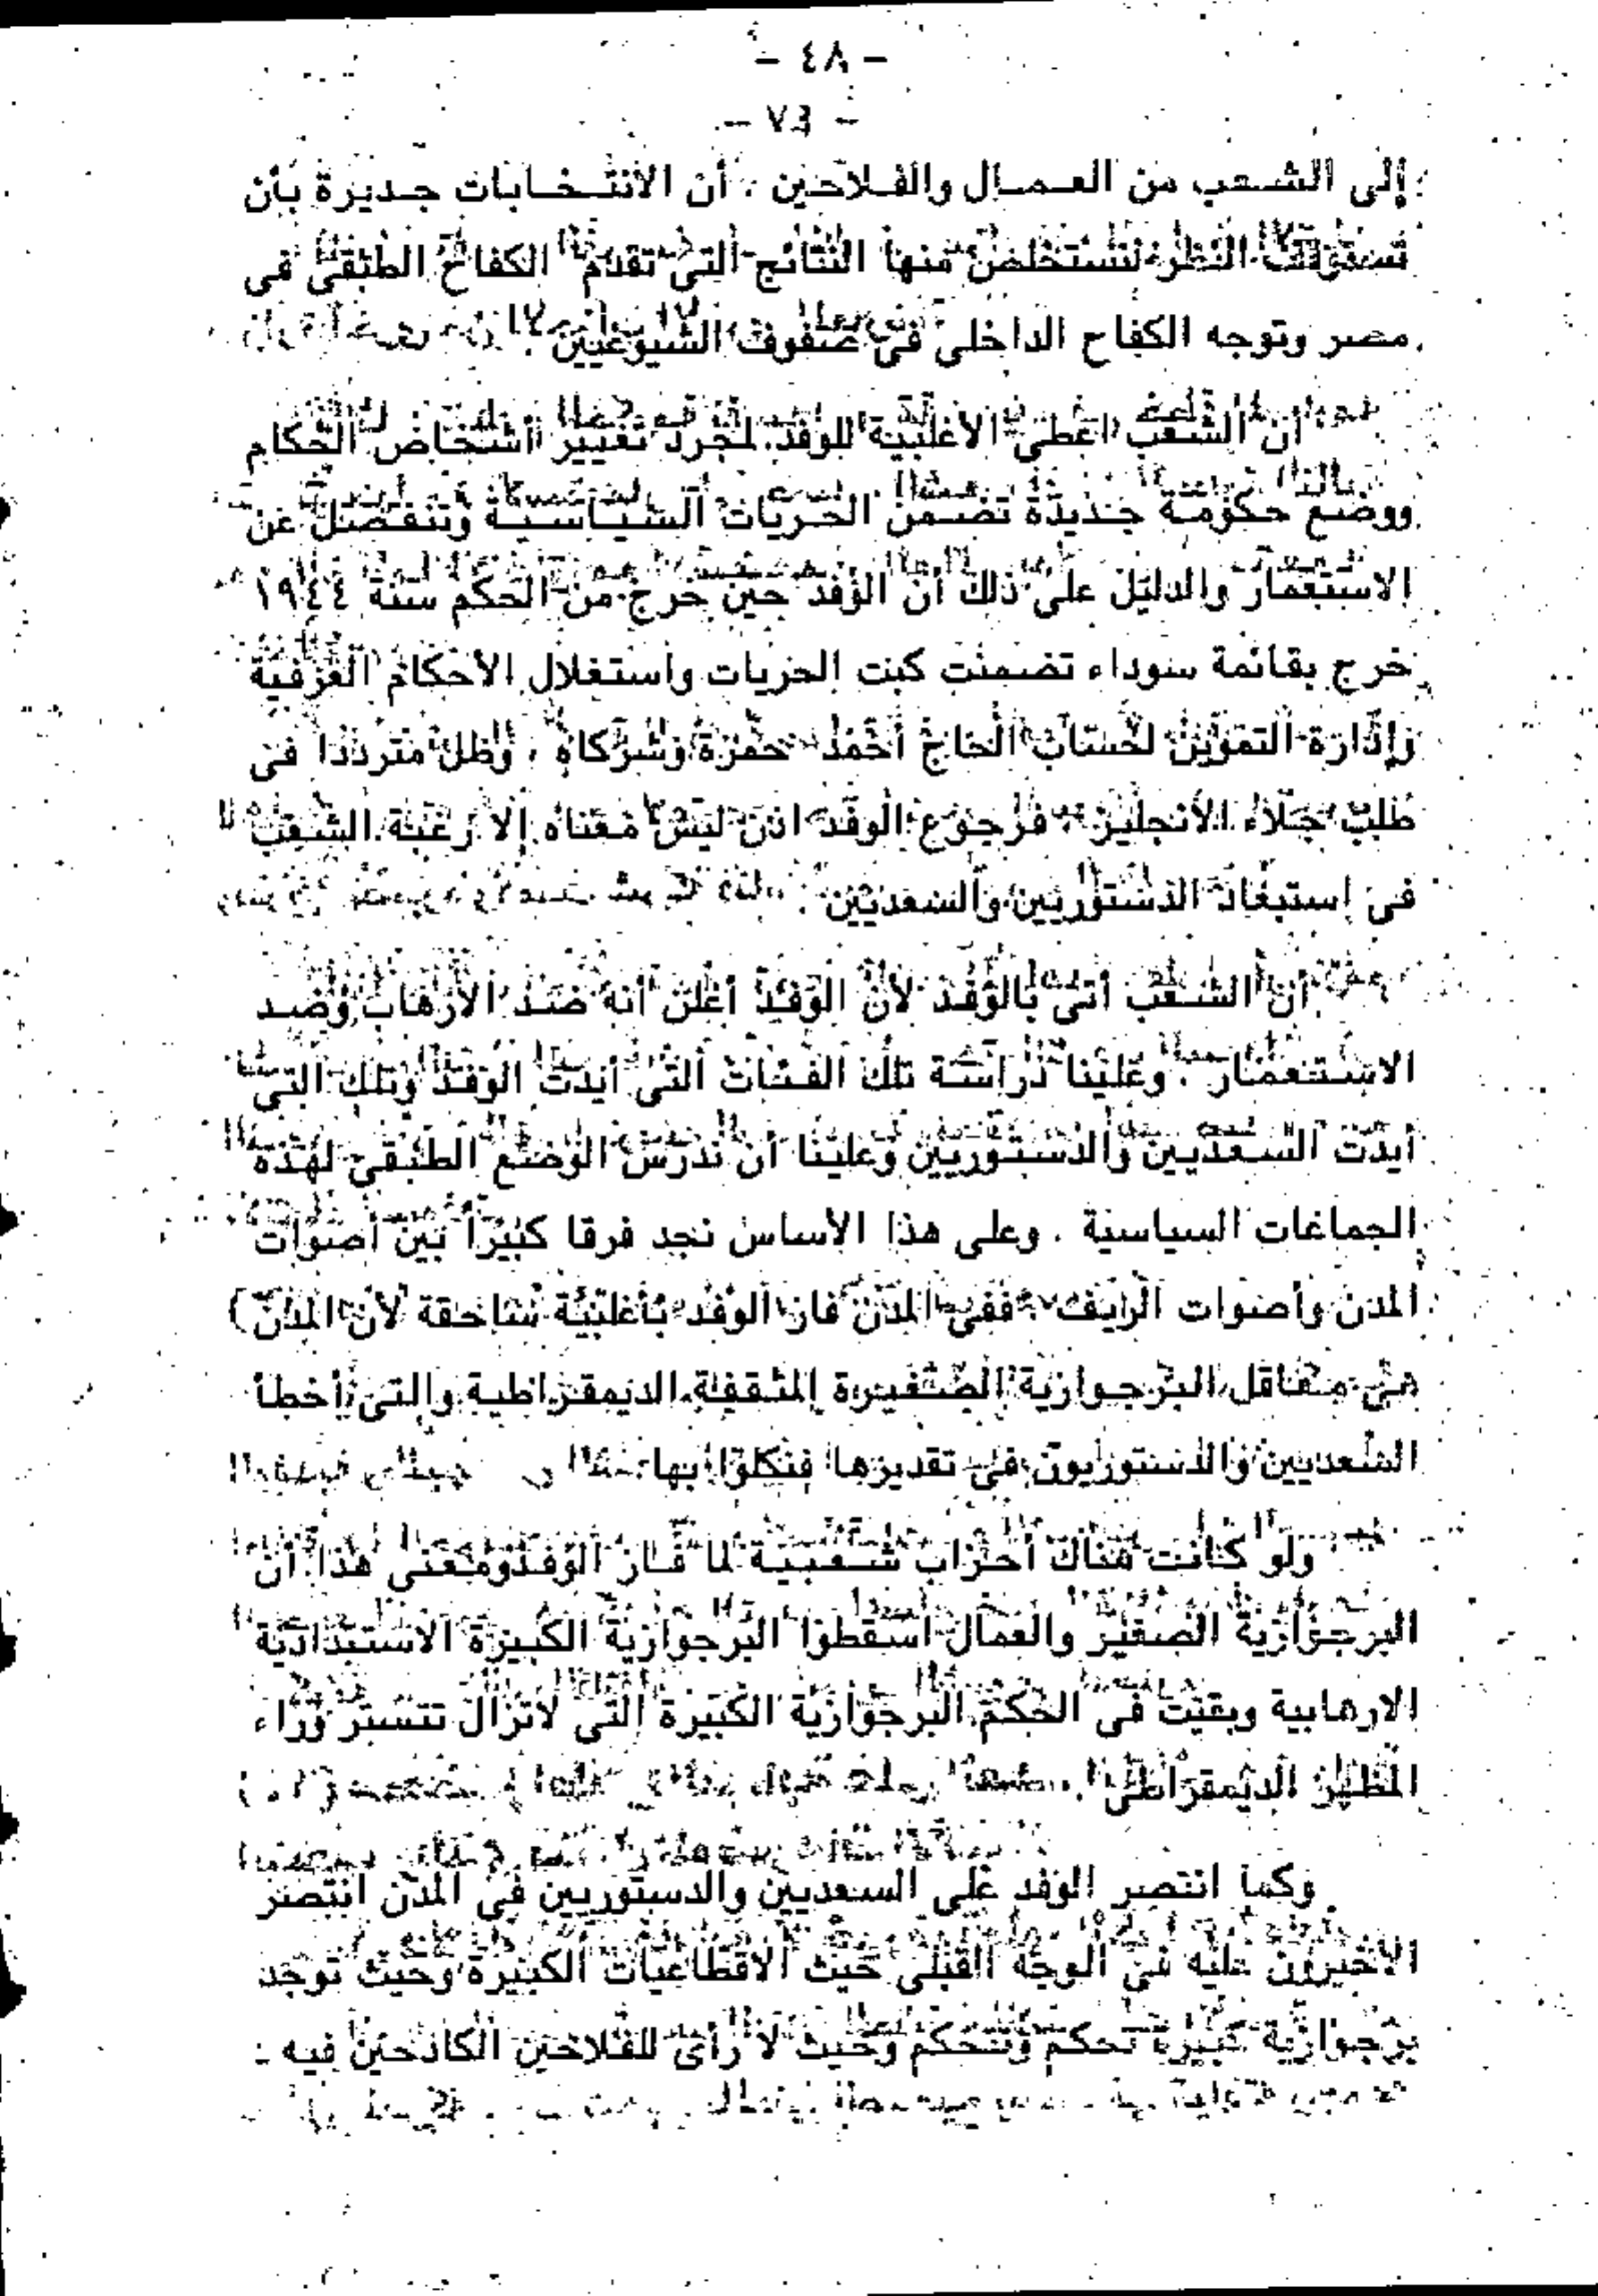 - ٤٨ -
إلى الشعب من العمال والفلاحين . أن الانتخابات جديرة بأن
تستوقف النظر لتستخلص منها النتائج التى تقدم الكفاح الطبقى فى
مصر وتوجه الكفاح الداخلى فى صفوف الشيوعيين .
أن الشعب اعطى الأغلبية للوفد لمجرد تغيير أشخاض الحكام
ووضع حكومة جديدة تضمن الحريات السياسية وتنفصل عن
الاستعمار والدليل على ذلك أن الوفد حين خرج من الحكم سنة ١٩٤٤
خرج بقائمة سوداء تضمنت كبت الحريات واستغلال الأحكام العرفية
وإدارة التموين لحساب الحاج أحمد حمزة وشركاه . وظل مترددا فى
طلب جلاء الأنجليز . فرجوع الوفد اذن ليس معناه إلا رغبة الشعب
فى إستبعاد الدستوريين والسعديين .
أن الشعب أتى بالوفد لأن الوفد أعلن أنه ضد الأرهاب وضد
الاستعمار . وعلينا دراسة تلك الفئات التى أيدت الوفد وتلك التى
أيدت السعديين والدستوريين وعلينا أن ندرس الوضع الطبقى لهذه
الجماعات السياسية . وعلى هذا الأساس نجد فرقا كبيراً بين أصوات
المدن وأصوات الريف . ففى المدن فاز الوفد بأغلبية ساحقة لأن المدن
هى معاقل البرجوازية الصغيرة المثقفة الديمقراطية والتى أخطأ
السعديين والدستوريون فى تقديرها فنكلوا بها
ولو كانت هناك أحزاب شعبية لما فاز الوفد ومعنى هذا أن
البرجوازية الصغير والعمال اسقطوا البرجوازية الكبيرة الاستبدادية
الارهابية وبقيت فى الحكم البرجوازية الكبيرة التى لاتزال تتستر وراء
المظهر الديمقراطى .
وكما انتصر الوفد على السعديين والدستوريين فى المدن انتصر
الأخيرون عليه فى الوجه القبلى حيث الاقطاعيات الكبيرة وحيث توجد
برجوازية كبيرة تحكم وتتحكم وحيث لا رأى للفلاحين الكادحين فيه .